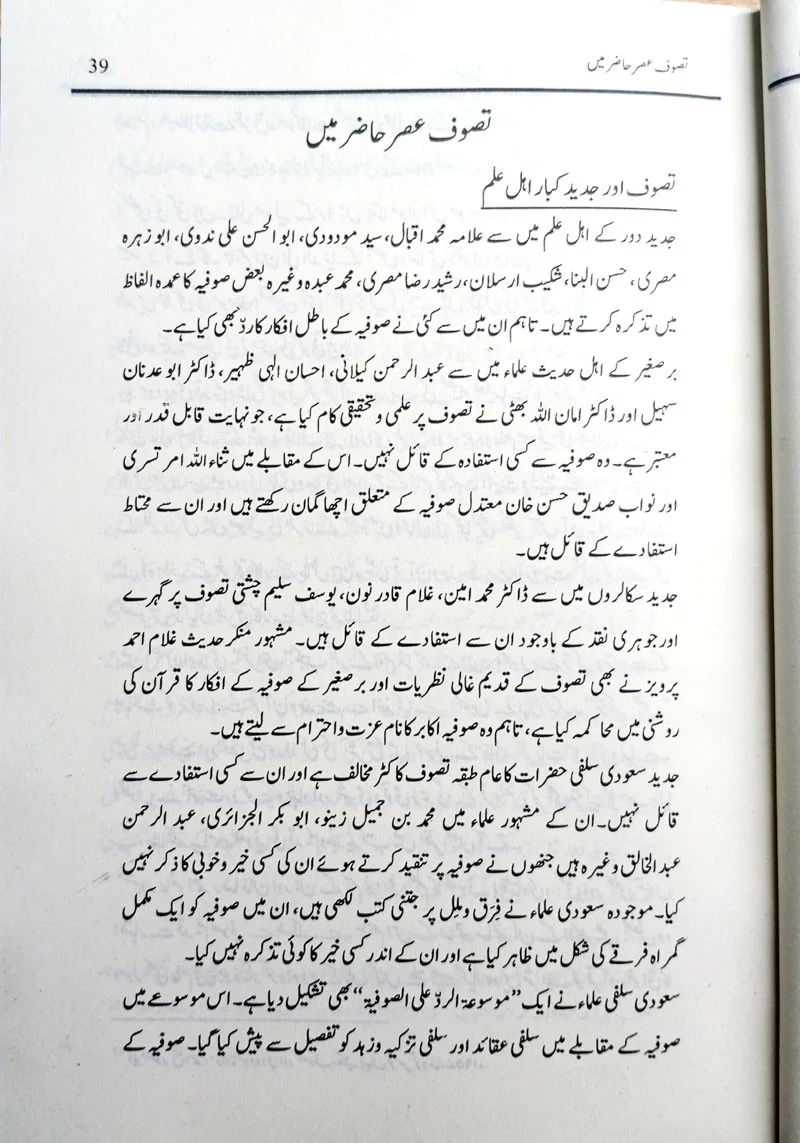 تصوف عصر حاضر میں
39
تصوف عصر حاضر میں
تصوف اور جدید کبار اہل علم
جدید دور کے اہل علم میں سے علامہ محمد اقبال، سید مودودی، ابوالحسن علی ندوی، ابو زہرہ
مصری، حسن البنا، شکیب ارسلان، رشید رضا مصری، محمد عبدہ وغیرہ بعض صوفیہ کا عمدہ الفاظ
میں تذکرہ کرتے ہیں۔ تاہم ان میں سے کئی نے صوفیہ کے باطل افکار کا ردّ بھی کیا ہے۔
برصغیر کے اہل حدیث علماء میں سے عبد الرحمن کیلانی، احسان الٰہی ظہیر، ڈاکٹر ابو عدنان
سہیل اور ڈاکٹر امان اللہ بھٹی نے تصوف پر علمی و تحقیقی کام کیا ہے، جو نہایت قابل قدر اور
معتبر ہے۔ وہ صوفیہ سے کسی استفادہ کے قائل نہیں۔ اس کے مقابلے میں ثناء اللہ امر تسری
اور نواب صدیق حسن خان معتدل صوفیہ کے متعلق اچھا گمان رکھتے ہیں اور ان سے محتاط
استفادے کے قائل ہیں۔
جدید سکالروں میں سے ڈاکٹر محمد امین، غلام قادر نون، یوسف سلیم چشتی تصوف پر گہرے
اور جوہری نقد کے باوجود ان سے استفادے کے قائل ہیں۔ مشہور منکر حدیث غلام احمد
پرویز نے بھی تصوف کے قدیم غالی نظریات اور برصغیر کے صوفیہ کے افکار کا قرآن کی
روشنی میں محاکمہ کیا ہے، تاہم وہ صوفیہ اکابر کا نام عزت و احترام سے لیتے ہیں۔
جدید سعودی سلفی حضرات کا عام طبقہ تصوف کا کٹر مخالف ہے اور ان سے کسی استفادے سے
قائل نہیں۔ ان کے مشہور علماء میں محمد بن جمیل زینو، ابو بکر الجزائری، عبد الرحمن
عبد الخالق وغیرہ ہیں جنھوں نے صوفیہ پر تنقید کرتے ہوئے ان کی کسی خیر و خوبی کا ذکر نہیں
کیا۔ موجودہ سعودی علماء نے فِرَق و مِلل پر جتنی کتب لکھی ہیں، ان میں صوفیہ کو ایک مکمل
گمراہ فرقے کی شکل میں ظاہر کیا ہے اور ان کے اندر کسی خیر کا کوئی تذکرہ نہیں کیا۔
سعودی سلفی علماء نے ایک ”موسوعة الردّ علی الصوفیة“ بھی تشکیل دیا ہے۔ اس موسوعے میں
صوفیہ کے مقابلے میں سلفی عقائد اور سلفی تزکیہ و زہد کو تفصیل سے پیش کیا گیا۔ صوفیہ کے